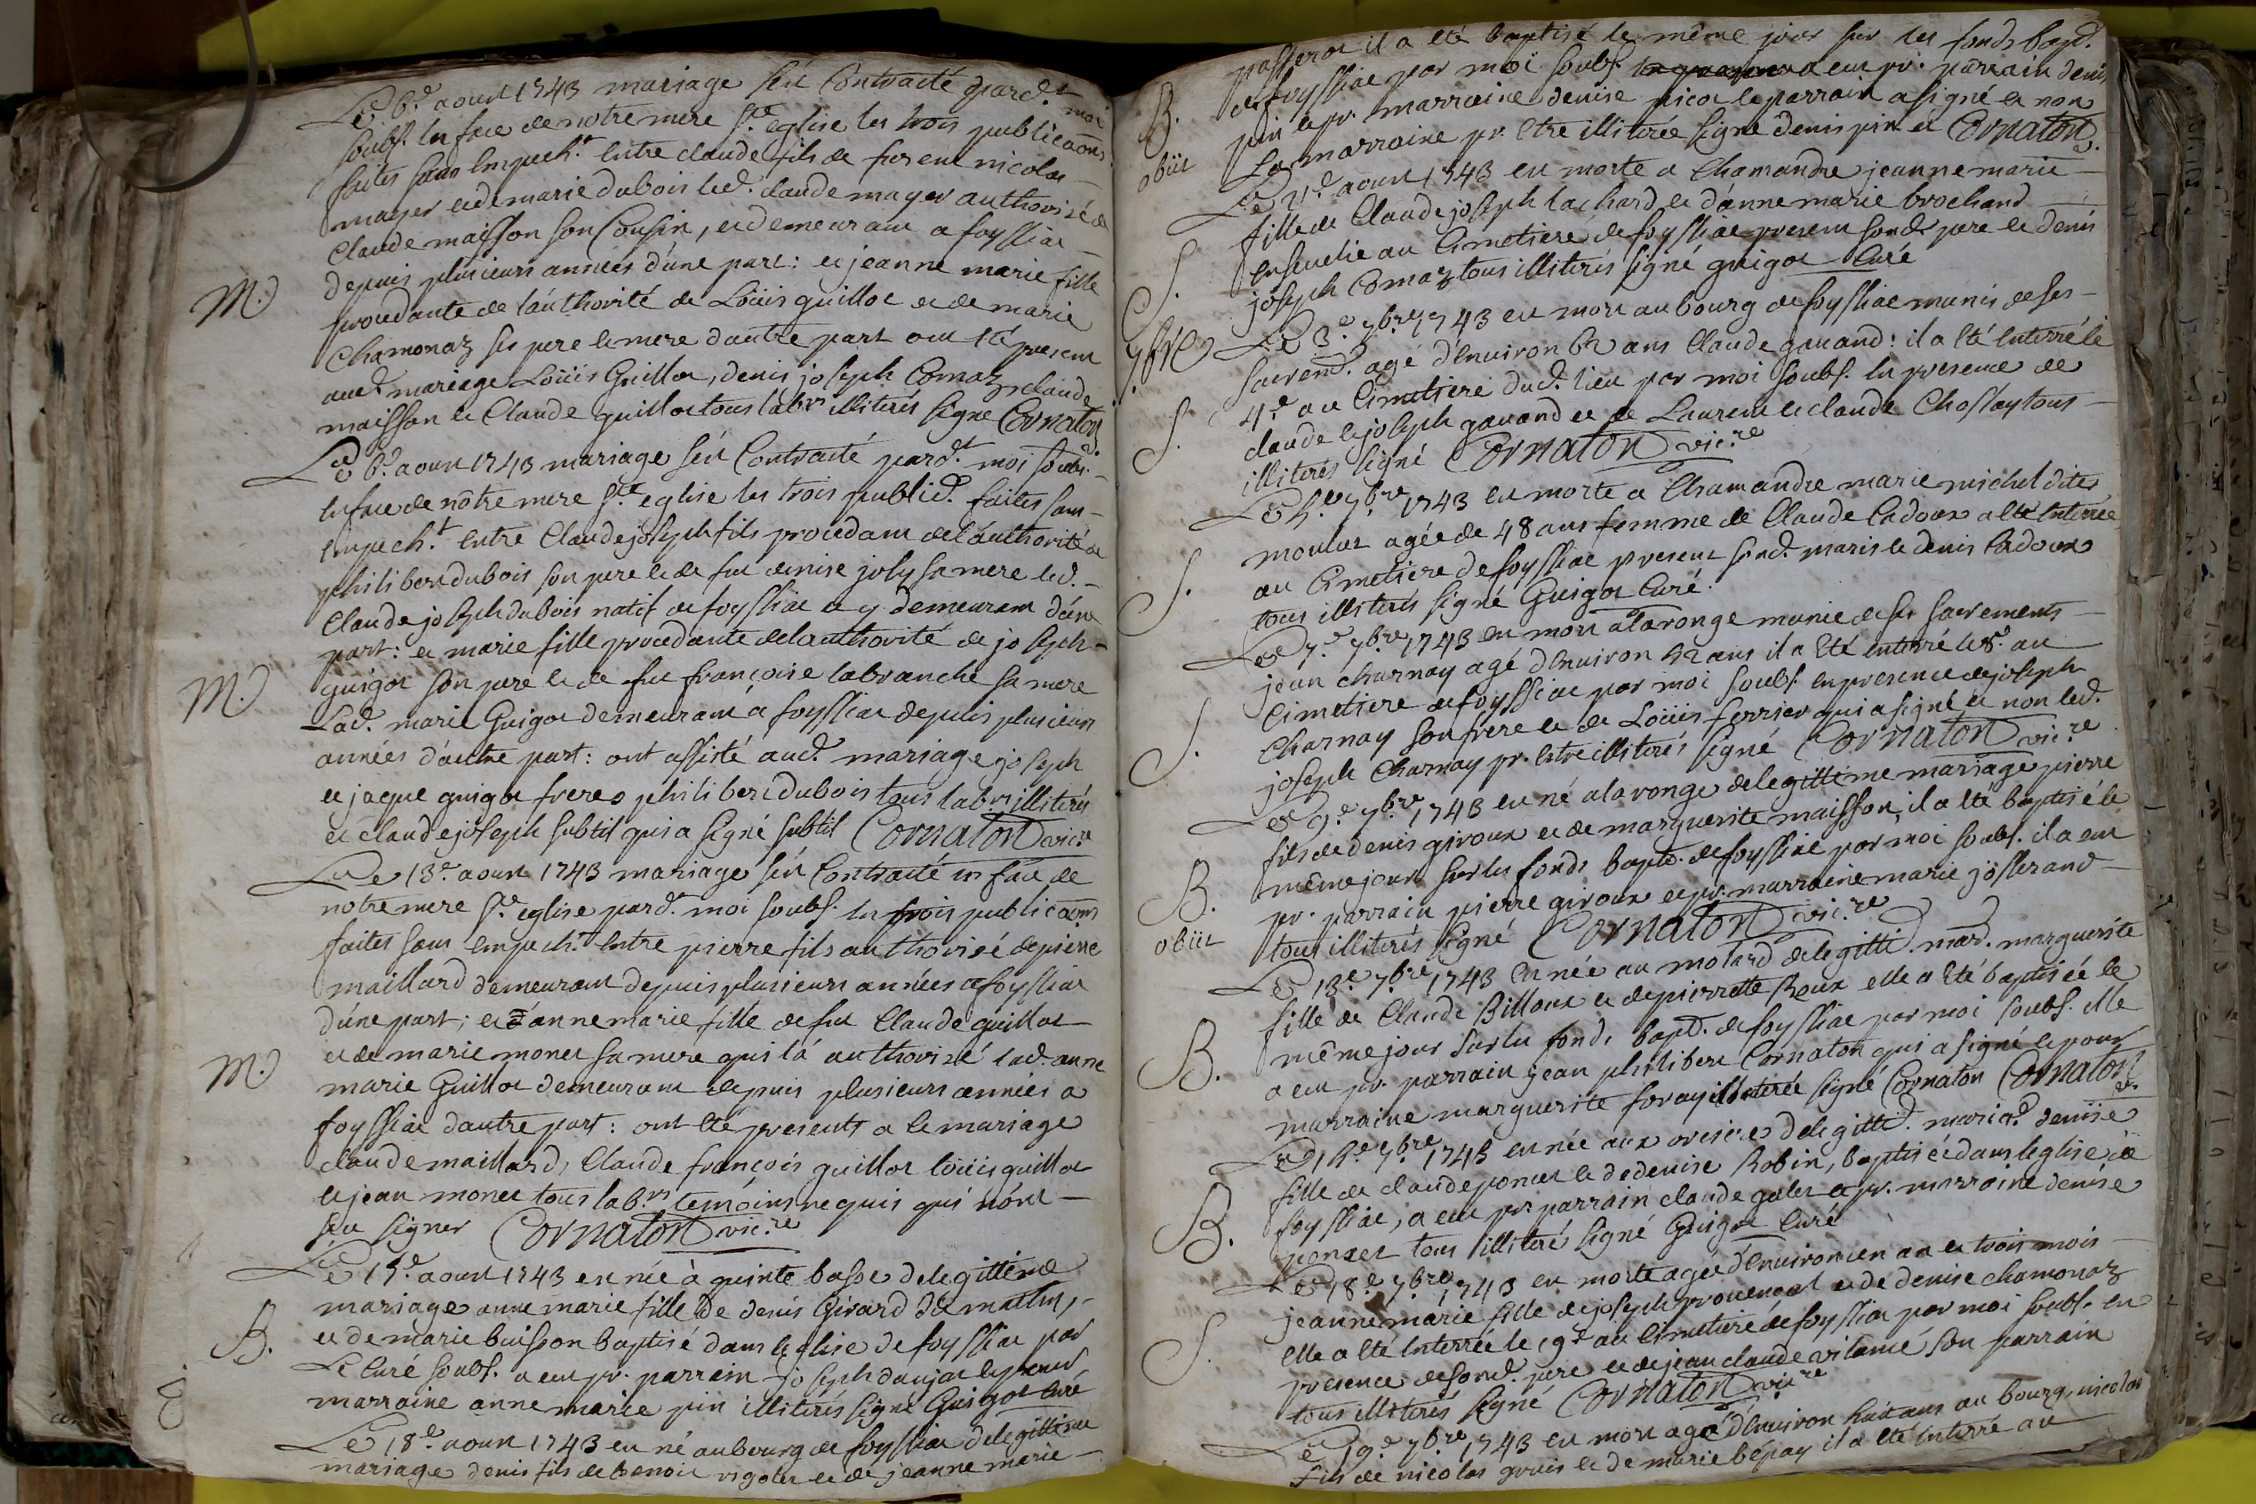 Le 6.e aoust 1743 mariage s'est Contracté pard.t moi
soubs. En face de notre mere s.te eglise les trois publicaons
faites sans Empech.t Entre claude fils de feu nicolas
mayer et de marie dubois led. claude mayer authorisé de
Claude maisson son Cousin, et demeurant a foyssiat
depuis plusieurs années d'une part: et jeanne marie fille
M. procedante de l'authorité de Loüis guillot et de marie
Chamonaz ses pere et mere d'autre part ont été present
aud. mariage Loüis Guillot, denis joseph Comaz, claude
maisson et Claude guillot tous lab.rs illiterés signé Cornaton
Le 6.e aoust 1743 mariage s'est Contracté pard.t moi soubs.
En face de nôtre mere s.te eglise les trois public. faites sans
Empech.t Entre Claude joseph fils procedant de l'authorité de
philibert dubois son pere et de feu denise joly sa mere led.
Claude joseph dubois natif de foyssiat et y demeurant d'une
part: et marie fille procedante de l'authorité de joseph
M. guigot son pere et de feu françoise labranche sa mere
Lad. marie Guigot demeurant a foyssiat depuis plusieurs
années d'autre part: ont assisté aud. mariage joseph
et jaque guigot freres philibert dubois tous lab.rs illiterés
et claude joseph subtil qui a signé subtil Cornaton vic.re
Le 13.e aoust 1743 mariage s'est Contracté en face de
notre mere s.te eglise pard.t moi soubs. les trois publicaons
faites sans Empech.t Entre pierre fils authorisé de pierre
maillard demeurant depuis plusieurs années a foyssiat
d'une part; et anne marie fille de feu Claude guillot
M. et de marie monet sa mere qui l'a authorisé lad. anne
marie Guillot demeurant depuis plusieurs années a
foyssiat d'autre part: ont été presents a le mariage
claude maillard, Claude françois guillot loüis guillot
et jean monet tous lab.rs temoins requis qui n'ont
sçu signer Cornaton vic.re
Le 15.e aoust 1743 est née à quinte basse de legitime
mariage anne marie fille de denis Girard dit
B. et de marie buisson baptisé dans l'eglise de foyssiat par
Le Curé soubs. a eut pr. parrain joseph et pour
marraine anne marie pin illiterés signé Guigot curé
Le 18.e aoust 1743 est né au bourg de foyssiat de legitime
mariage denis fils de benoit vigolet et de jeanne marie
passerat il a été baptisé le même jour sur les fonds bapt.
B. de foyssiat par moi soubs. a eut pr. parrain denis
pin et pr. marraine denise picot le parrain a signé et non
obiit La marraine pr. etre illiterée signé denis pin et Cornaton
Le 21.e aoust 1743 est morte a Chamandre jeanne marie
fille de Claude joseph lachard et d'anne marie brochand
S. Ensevelie au Cimetiere de foyssiat present sond. pere et denis
joseph Comaz tous illiterés signé guigot Curé
7bre Le 3.e 7bre 1743 est mort au bourg de foyssiat munis de ses
sacrem. agé d'environ 62 ans Claude gavand: il a été Enterré le
S. 4.e au Cimetiere dud. lieu par moi soubs. En presence de
claude et joseph gavand et de Laurent et claude Chossay tous
illiterés signé Cornaton vic.re
Le 5.e 7bre 1743 est morte a Chamandre marie michel dites
moulut agée de 48 ans femme de Claude Cadoux a été Enterrée
S. au Cimetiere de foyssiat present sond. maris et denis Cadoux
tous illiterés signé Guigot Curé.
Le 7.e 7bre 1743 est mort a laronge munie de ses sacrements
jean charnay agé d'environ 42 ans il a été Enterré le 8.e au
Cimetiere de foyssiat par moi soubs. En presence de joseph
S. Charnay son frere et de Loüis ferrier qui a signé et non led.
joseph Charnay pr. Estre illiterés signé Cornaton vic.re
Le 9.e 7bre 1743 est né a laronge de legittime mariage pierre
fils de denis giroux et de marguerite maisson, il a été baptisé le
B. même jour sur les fonds bapt. de foyssiat par moi soubs. il a eut
pr. parrain pierre giroux et pr. marraine marie josserand
obiit tous illiterés signé Cornaton vic.re
Le 13.e 7bre 1743 est née au motard de legitti. mar. marguerite
fille de Claude Billoux et de pierrette Roux elle a été baptisée le
B. même jour sur les fonds bapt. de foyssiat par moi soubs. elle
a eut pr. parrain jean philibert Cornaton qui a signé et pour
marraine marguerite foray illiterée signé Cornaton Cornaton v.
Le 14.e 7bre 1743 est née aux de legitti. mariag. denise
fille de claude poncet et de denise Robin, baptisée dans l'eglise de
B. foyssiat, a eut pr. parrain claude galet et pr. marraine denise
poncet tous illiterés signé Guigot Curé
Le 18.e 7bre 1743 est morte agée d'environ un an et trois mois
jeanne marie fille de joseph provencal et de denise chamonaz
S. Elle a été Enterrée le 19.e au Cimetiere de foyssiat par moi soubs. en
presence de sond. pere et de jean claude vilamé son parrain
tous illiterés signé Cornaton vic.re
Le 19.e 7bre 1743 est mort agé d'environ huit ans au bourg, nicolas
fils de nicolas gonis et de marie bepay il a été Enterré au